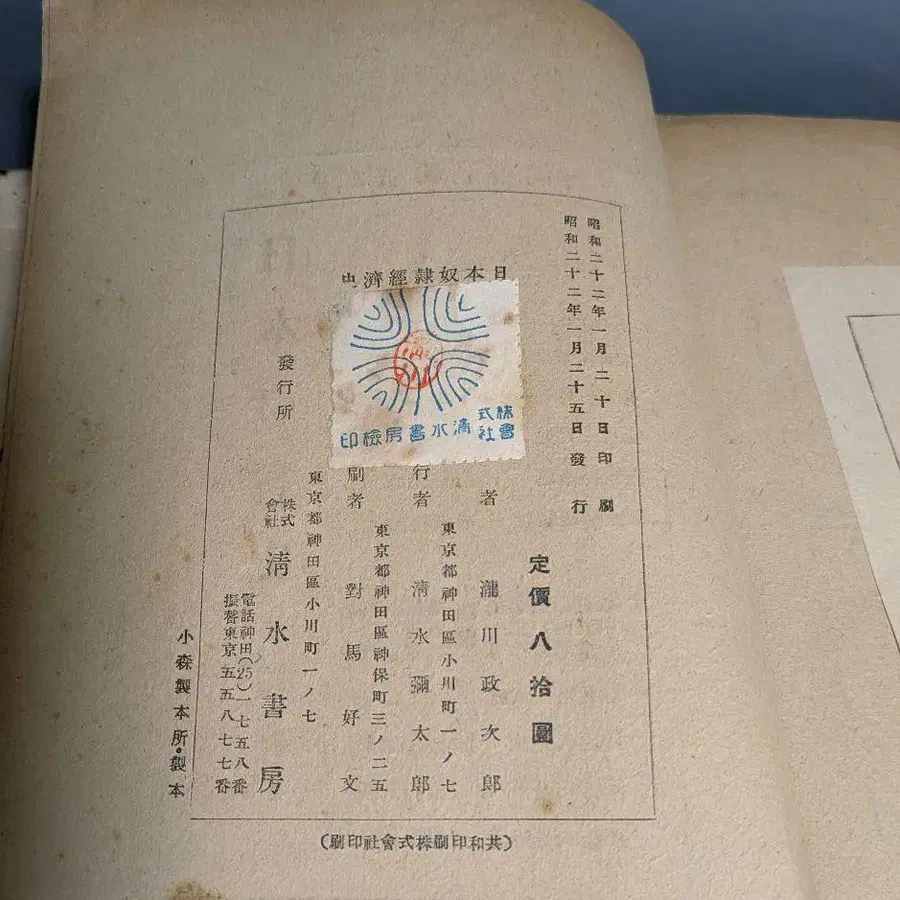 昭和二十二年一月二十日印刷
昭和二十二年一月二十五日發行
定價八拾圓
日本奴隷經濟史
株式會社清水書房檢印
者 瀧川政次郎
東京都神田區小川町一ノ七
行者 清水彌太郎
東京都神田區神保町三ノ二五
刷者 對馬好文
發行所
東京都神田區小川町一ノ七
株式會社 清水書房
電話神田(25)一七五八番
振替東京五五八七七番
(共和印刷株式會社印刷)
小森製本所・製本